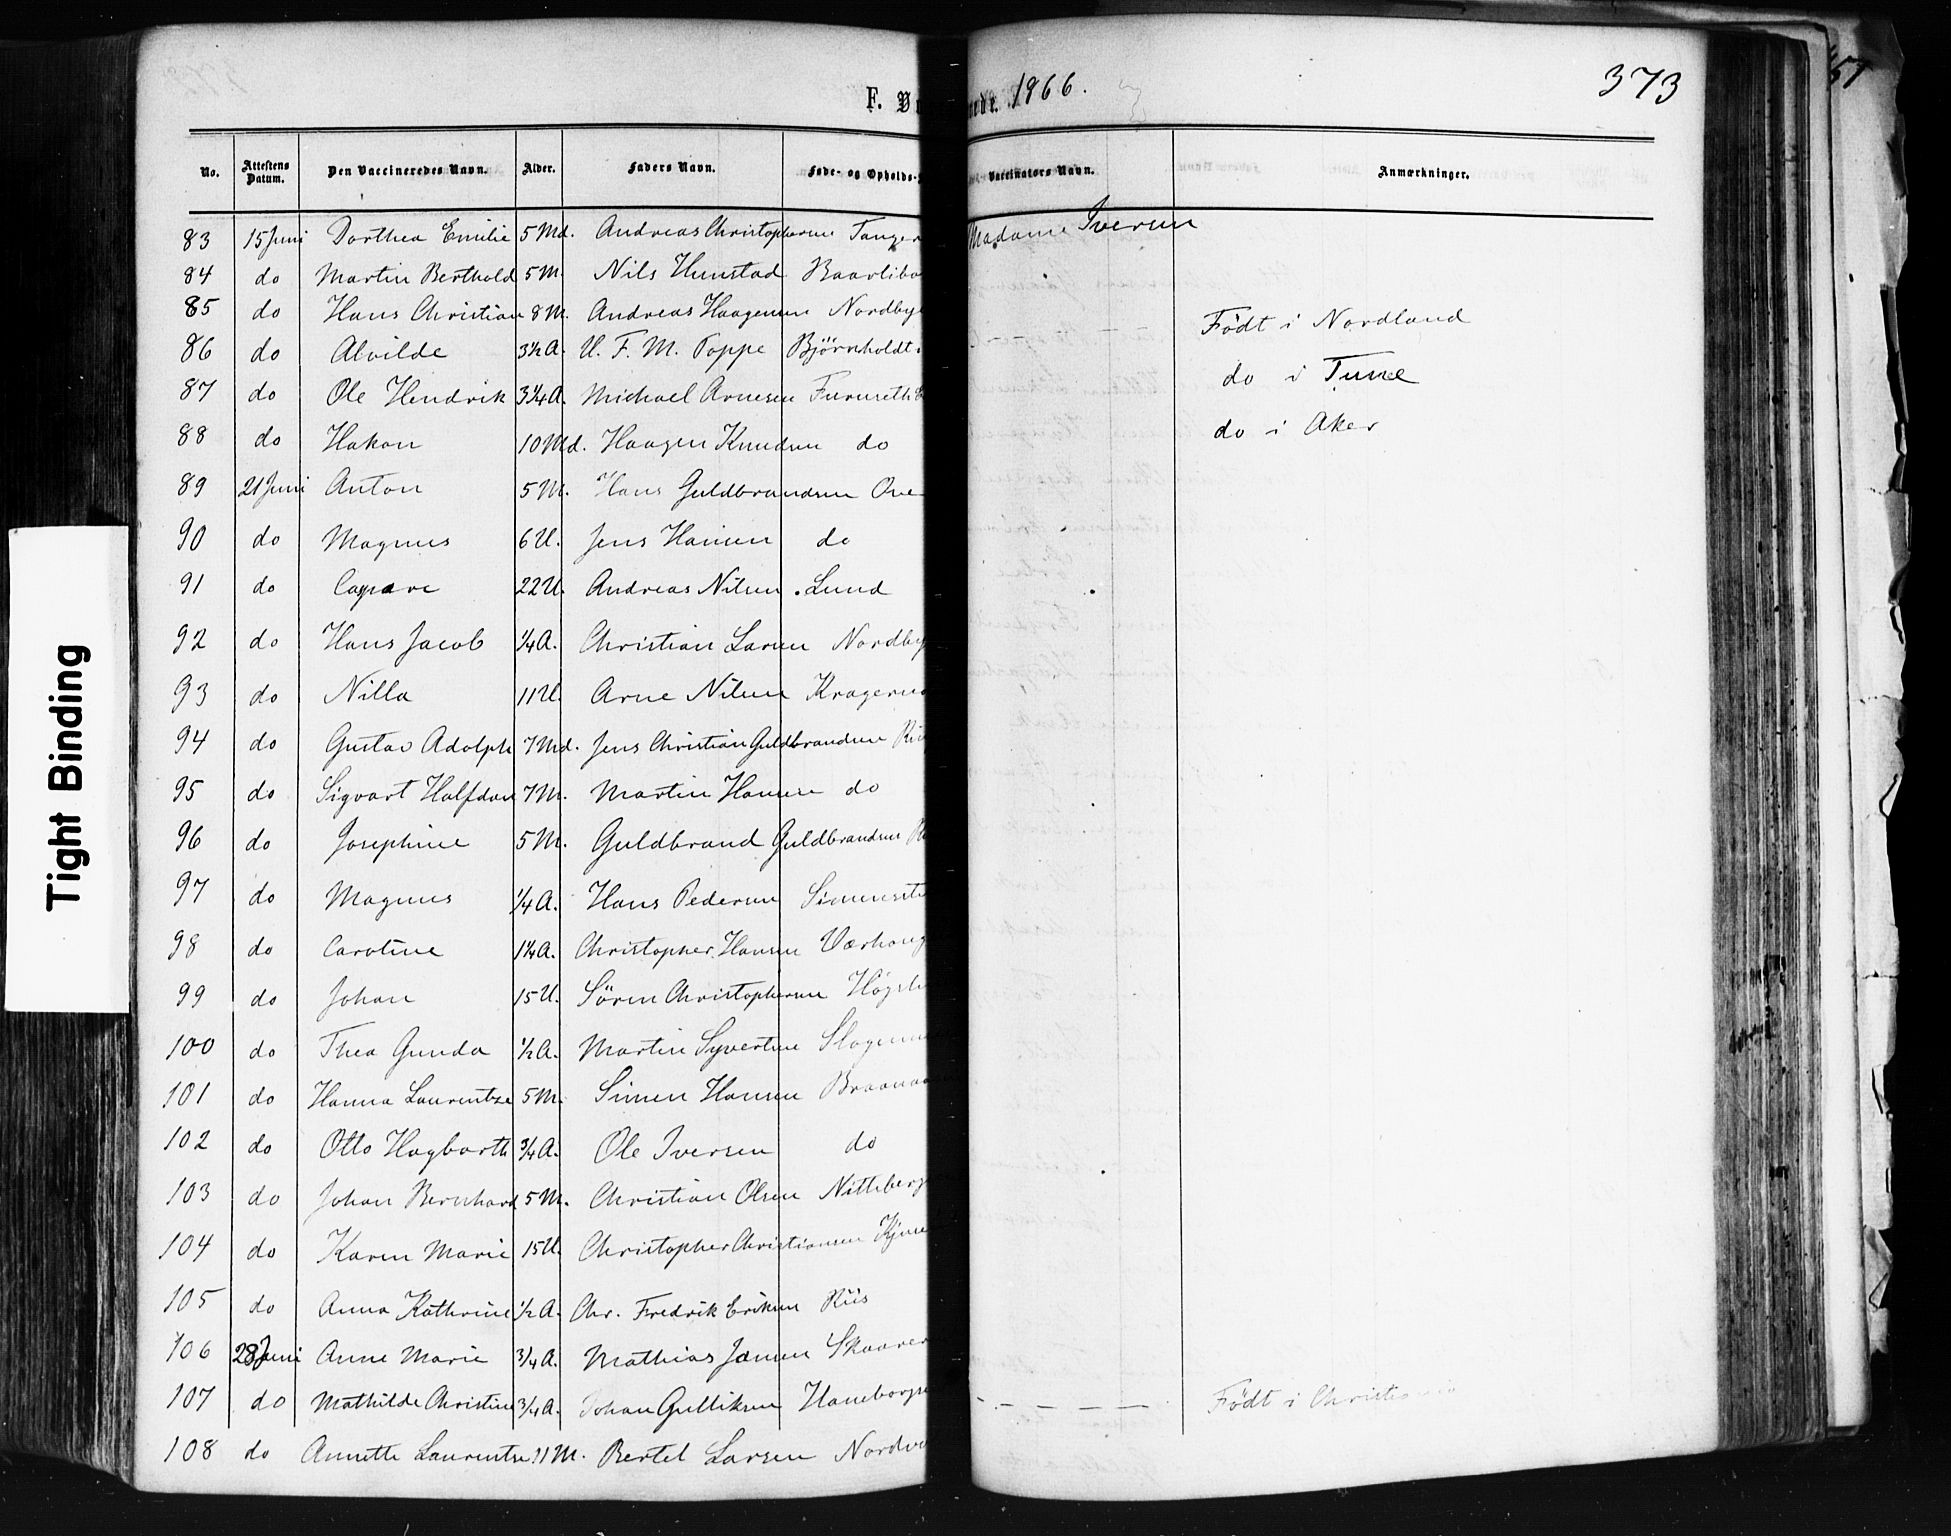 Tight Binding
F. Va
erede. 1866.
373
57
No. Attestens Datum. Den Vaccineredes Navn. Alder. Faders Navn. Føde- og Opholds- Vaccinators Navn. Anmærkninger.
83 15 Juni Dorthea Emilie 5 Md. Andreas Christophersen Tanger Madame Iversen
84 do Martin Berthold 5 M. Nils Hunstad Baarlibo
85 do Hans Christian 8 M. Andreas Haagensen Nordbye Født i Nordland
86 do Alvilde 3½ A. U. F. M. Poppe Bjørnholdt do i Tune
87 do Ole Hendrik 3¼ A. Michael Arnesen Furuseth do i Aker
88 do Hakon 10 Md. Haagen Knudsen do
89 21 Juni Anton 5 M. Hans Guldbrandsen One
90 do Magnus 6 U. Jens Hansen do
91 do Caspare 22 U. Andreas Nilsen Lund
92 do Hans Jacob ¼ A. Christian Larsen Nordby
93 do Nilla 11 U. Arne Nilsen Kragerud
94 do Gustav Adolph 7 Md. Jens Christian Guldbrandsen Ri
95 do Sigvart Halfdan 7 M. Martin Hansen do
96 do Josephine 5 M. Guldbrand Guldbrandsen
97 do Magnus ¼ A. Hans Pedersen Simenst
98 do Caroline 1¼ A. Christopher Hansen Værhoug
99 do Johan 15 U. Sören Christophersen Høgsl
100 do Thea Gunda ½ A. Martin Syvertsen Slogum
101 do Hanna Laurentze 5 M. Simen Hansen Braanaa
102 do Otto Hagbarth ¾ A. Ole Iversen do
103 do Johan Bernhard 5 M. Christian Olsen Nitteberg
104 do Karen Marie 15 U. Christopher Christiansen Kjus
105 do Anna Kathrine ½ A. Chr. Fredrik Eriksen Riis
106 28 Juni Anne Marie ¾ A. Mathias Jansen Skaarer
107 do Mathilde Christine ¾ A. Johan Gulliksen Haneborg Født i Christiania
108 do Annette Laurentse 11 M. Bertel Larsen Nordvo